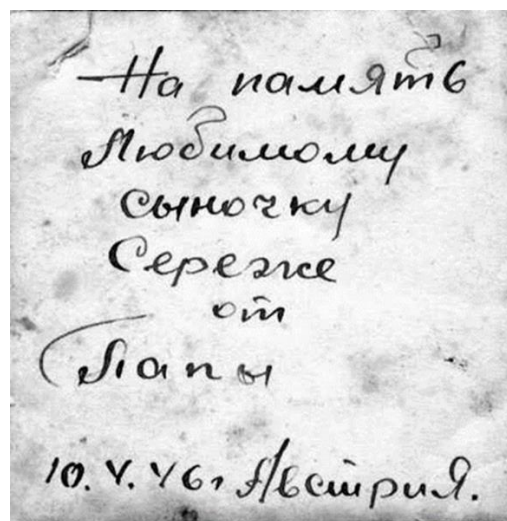 На память
Любимому
сыночку
Сереже
от
Папы
10.V.46г Австрия.